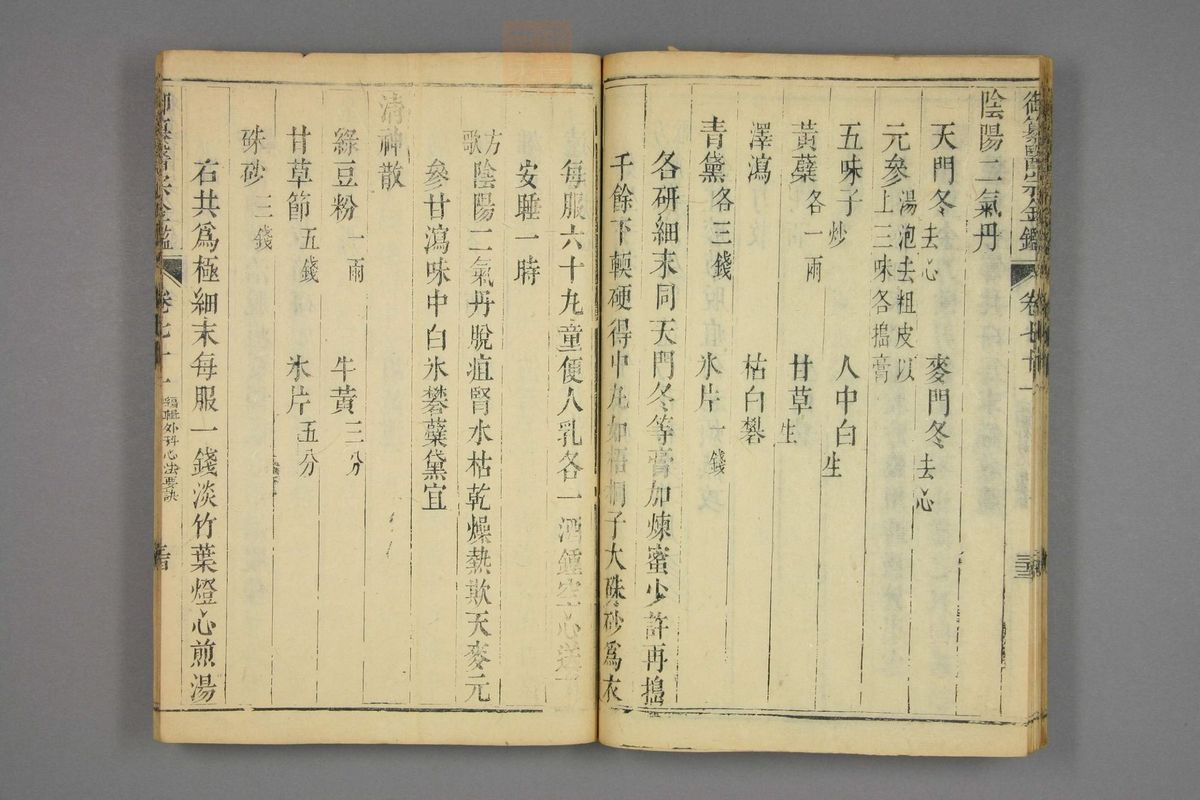 御纂醫宗金鑑 卷七十
陰陽二氣丹
天門冬去心 麥門冬去心
元參湯泡去粗皮以上三味各搗膏
五味子炒 人中白生
黃蘗各一兩 甘草生
澤瀉 枯白礬
青黛各三錢 氷片一錢
各研細末同天門冬等膏加煉蜜少許再搗
千餘下輭硬得中丸如梧桐子大硃砂爲衣
每服六十九童便人乳各一酒鍾空心送下
安睡一時
方歌 陰陽二氣丹脫疽腎水枯乾燥熱欺天麥元
參甘瀉味中白氷礬蘗黛宜
清神散
綠豆粉一兩 牛黃三分
甘草節五錢 氷片五分
硃砂三錢
右共爲極細末每服一錢淡竹葉燈心煎湯
卷七十一 編輯外科心法要訣